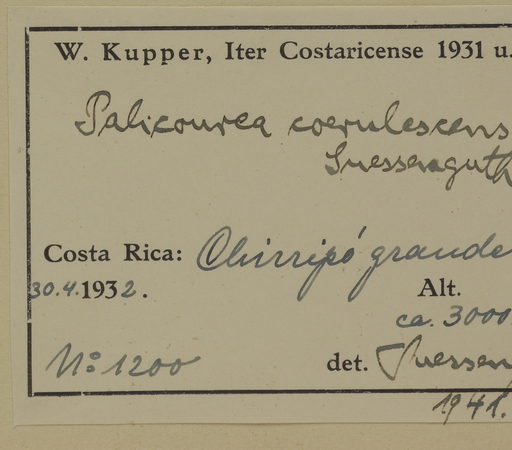 W. Kupper, Iter Costaricense 1931 u.
Palicourea coerulescens
Suessenguth
Costa Rica: Chirripó grande
30.4.1932.
Alt.
ca. 3000
No 1200
det. Suessen
1941.